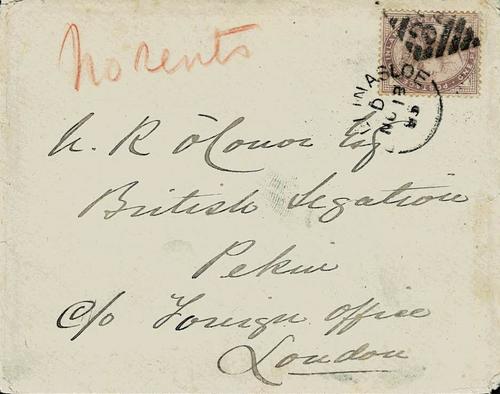 No rents
BALLINASLOE
D
NO 13
N. R. O'Conor Esq
British Legation
Pekin
c/o Foreign Office
London